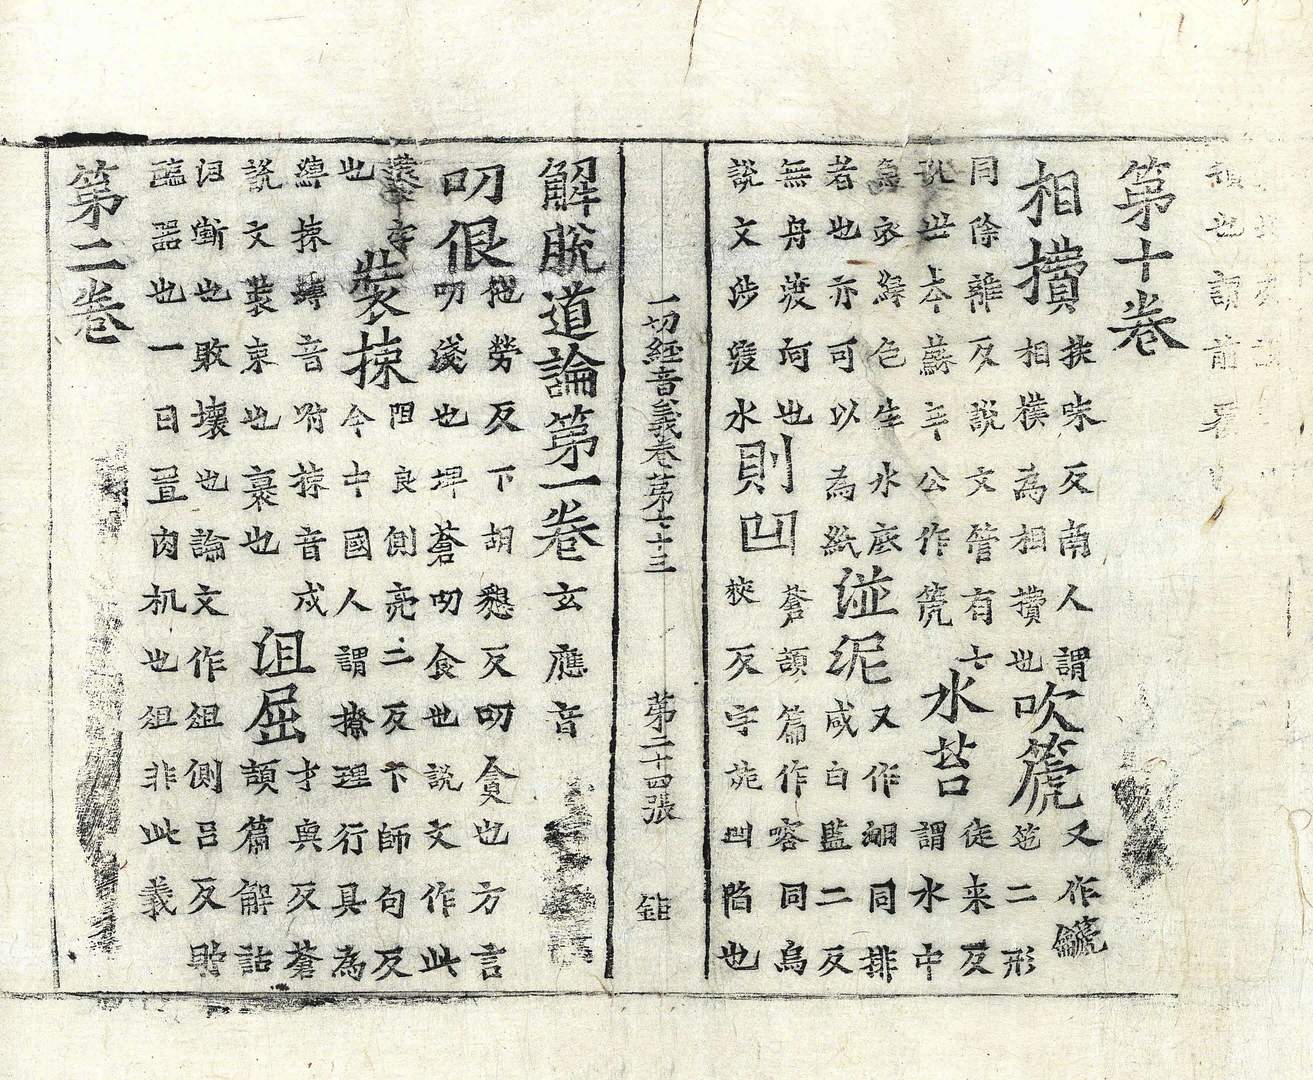 第十卷
相攢
挾味反南人謂
相撲為相攢也
吹箎
又作
笆二形
同除離反說文管有七
孔世本蘇辛公作箎
水苔
徒來反
謂水中
魚衣綠色生水底
者也亦可以為紙
湴泥
又作㴝同排
咸白監二反
無舟渡河也
說文涉渡水
則凹
蒼頡篇作㗕同烏
狹反字苑凹陷也
一切經音義卷第七十三 第二十四張 鉅
解脫道論第一卷 玄應音
叨佷
他勞反下胡懇反叨貪也方言
叨殘也埤蒼叨食也說文作此
字
也
裝揀
阻良側亮二反下師句反
今中國人謂撩理行具為
縛揀縛音附揀音戍
說文裝束也裹也
沮屈
才與反蒼
頡篇解詁
沮漸也敗壞也論文作俎側呂反貯
醢器也一曰置肉机也俎非此義
第二卷